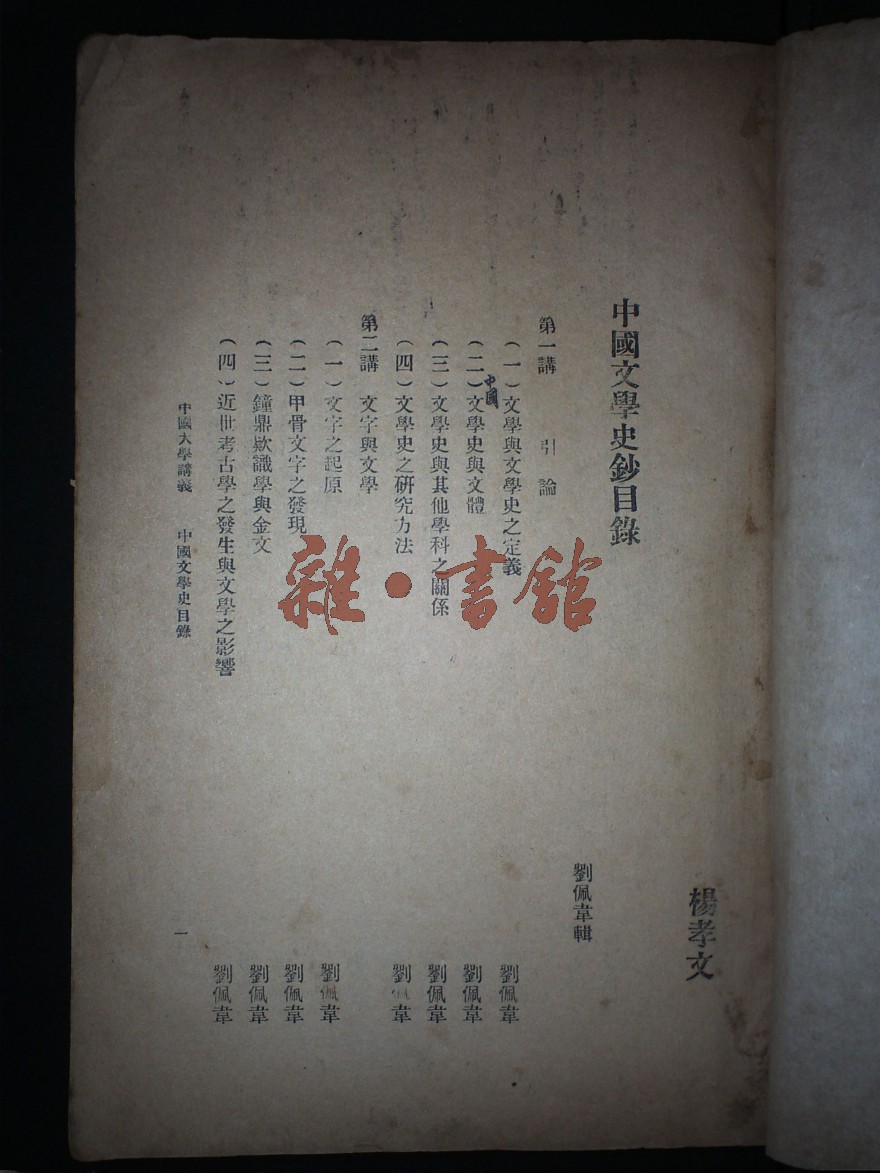 楊孝文
中國文學史鈔目錄
劉佩韋輯
第一講 引論
(一)文學與文學史之定義 劉佩韋
(二)中國文學史與文體 劉佩韋
(三)文學史與其他學科之關係 劉佩韋
(四)文學史之研究方法 劉佩韋
第二講 文字與文學
(一)文字之起原 劉佩韋
(二)甲骨文字之發現 劉佩韋
(三)鐘鼎欵識學與金文 劉佩韋
(四)近世考古學之發生與文學之影響 劉佩韋
中國大學講義 中國文學史目錄 一
雜·書館